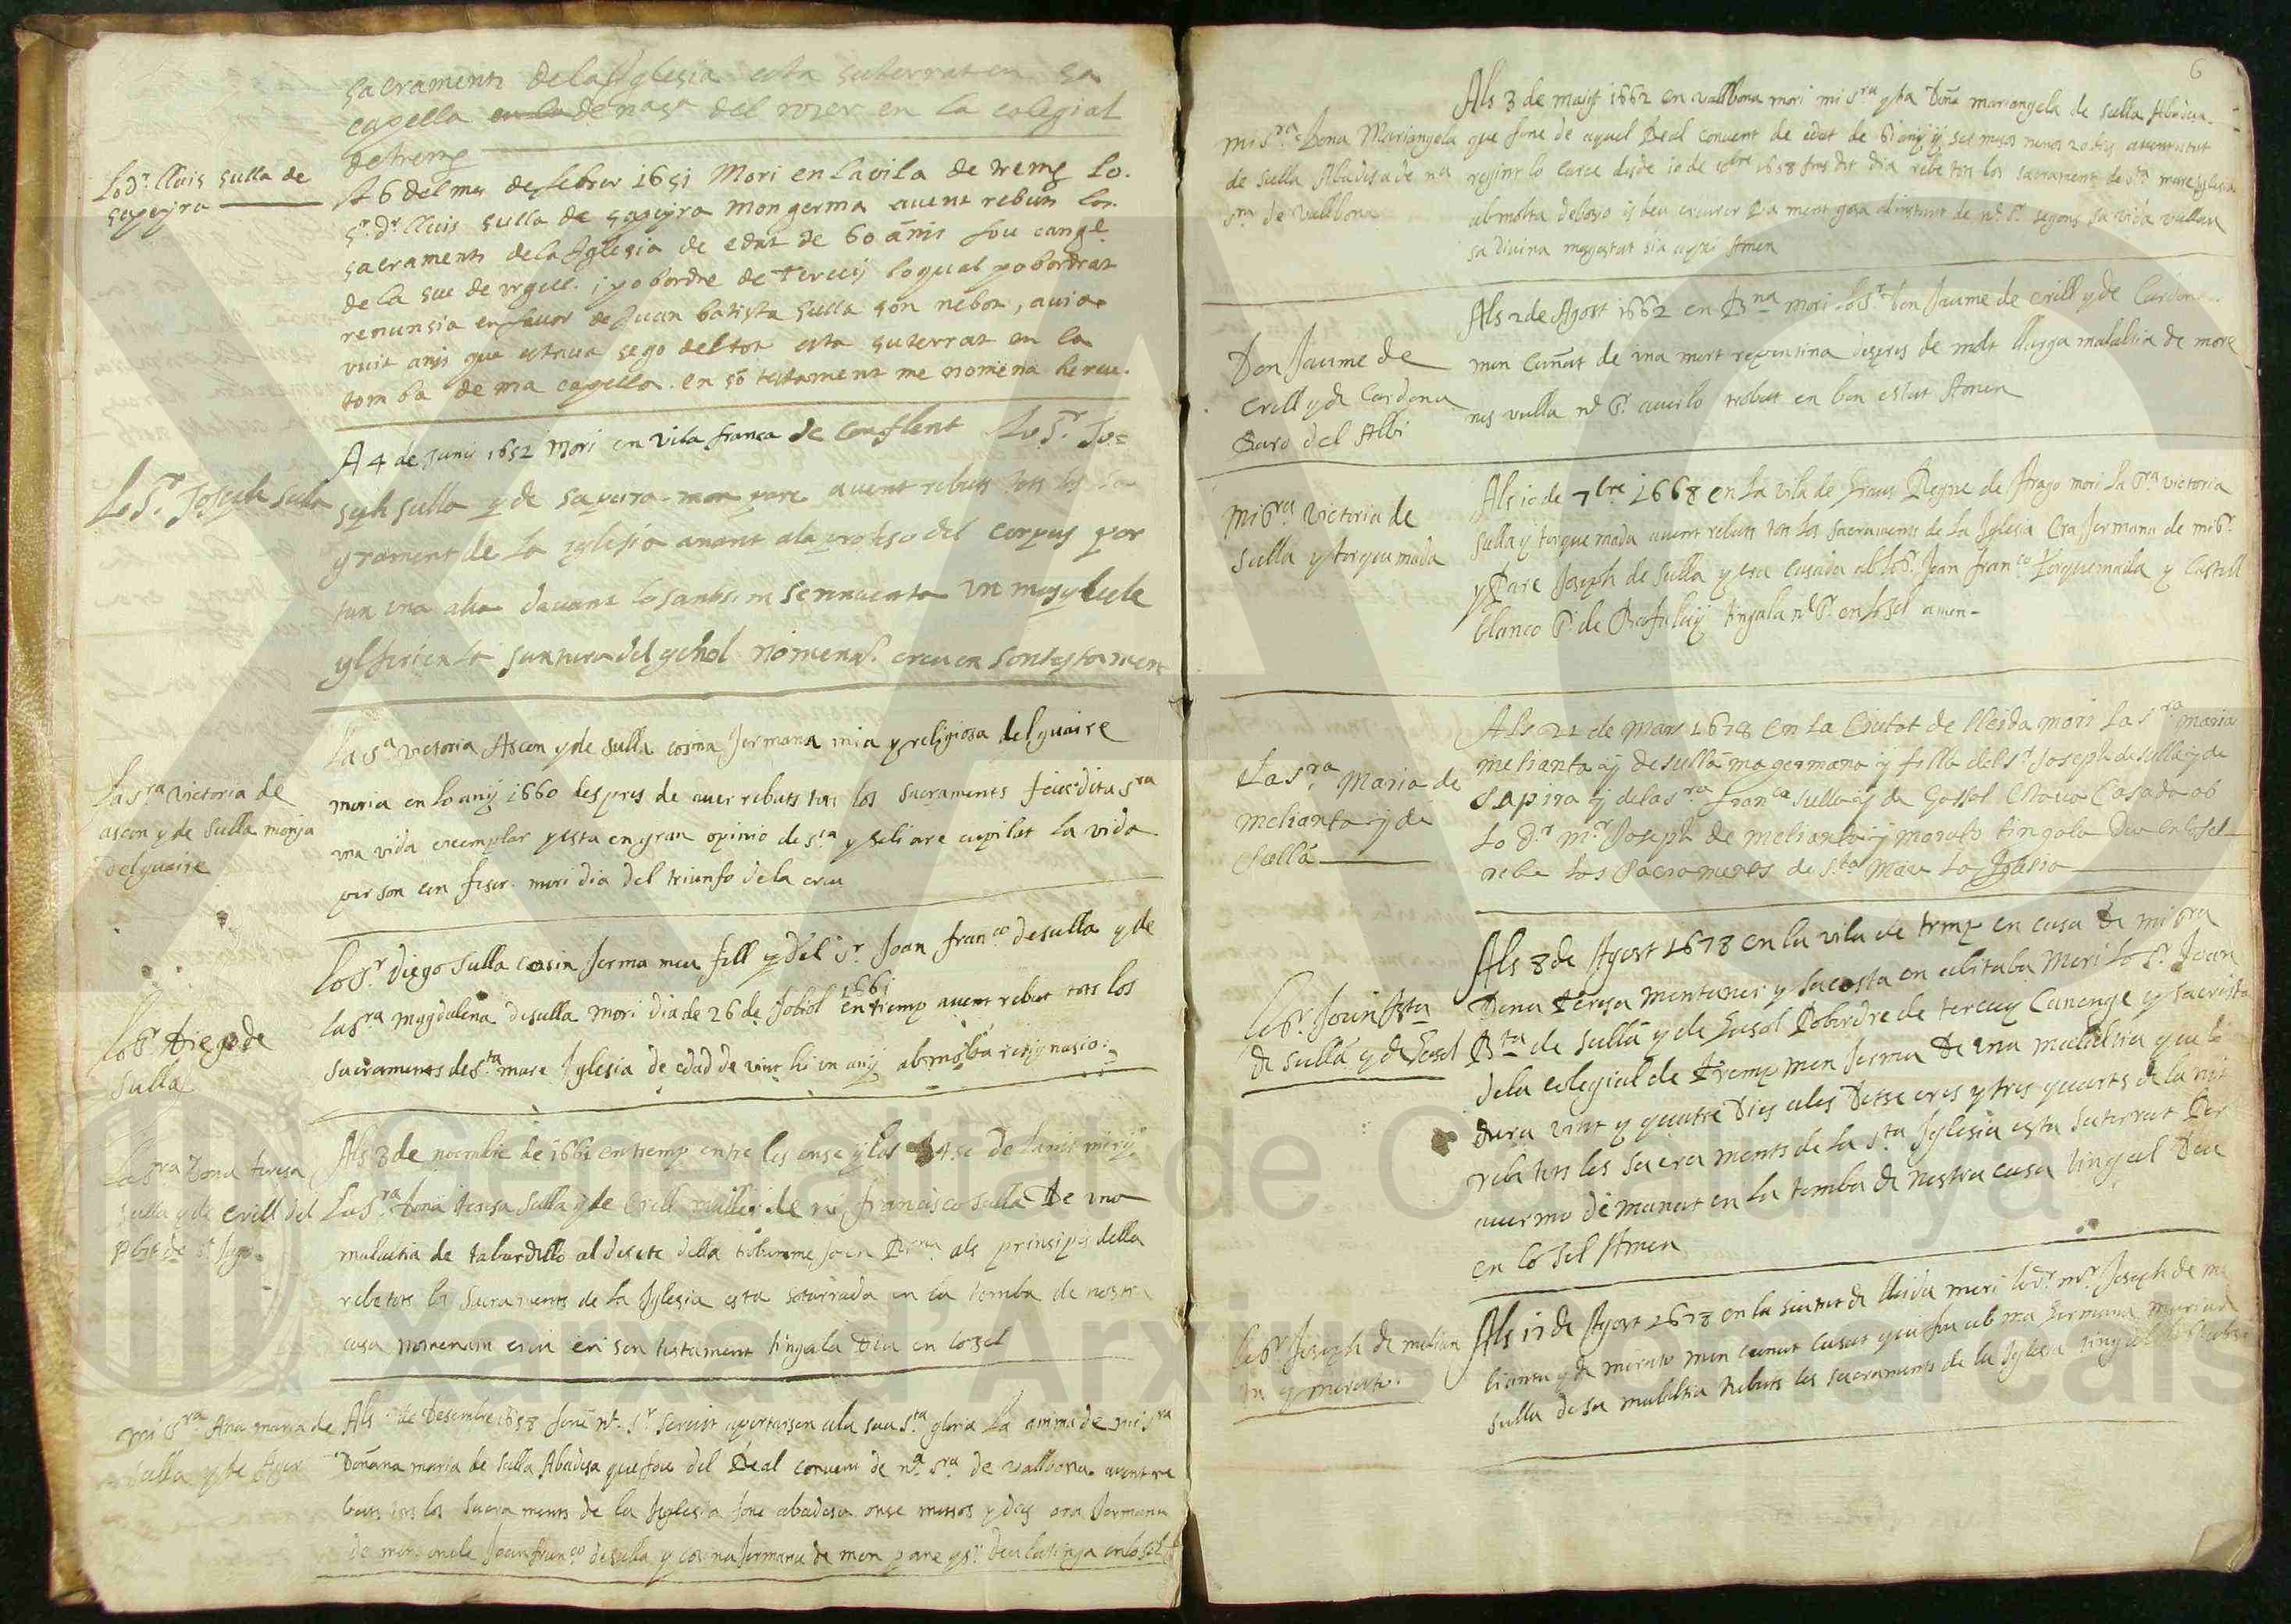 sacraments de la Iglesia esta suterrat en sa
capella en la de nas^a del roser en la colegial
de tremp
Lo D^r. lluis sulla de
sapeyra
A 6 del mes de febrer 1651 Mori en la vila de tremp lo.
S^r. D^r lluis sulla de sapeyra mon germa auent rebuts los
sacraments de la Iglesia de edat de 60 anis fou cange
de la seu de urgell. i pobordre de Teruij lo qual pobordrat
renunsia en fauor de Juan batista sulla son nebot, auia
vuit anis que estaua sego del tot esta suterrat en la
tomba de ma capella. en so testament me nomena hereu.
Lo S^r. Joseph sulla
A 4 de Juny 1652 Mori en vila franca de conflent Lo S^r. Jo=
seph sulla y de sapeira mon pare auent rebuts tots los sa
grament de La iglesia anant a la profeso del corpus por
tan una aha dauant lo santis.m
yl feri en la juntura del genol nomena. ereu en son testament
La s^ra victoria de
ascon y de sulla monja
del guaire
La s^a victoria Ascon y de sulla cosina Jermana mia y religiosa del guaire
moria en lo any 1660 despres de auer rebuts tots los sacraments feu dita s^ra
una vida exemplar y esta en gran opinio de s^ta y se li are cupilat la vida
per son confesor. mori dia del triunfo de la creu
Lo S^r. Diego de
sulla
Lo S^r. diego sulla cosin Jerma meu fill y del S^r. Joan fran^co de sulla y de
1661
la s^ra magdalena de sulla mori dia de 26 de Joliol en tremp auent rebut tots los
sacraments de S^ta mare Iglesia de edad de vint hi un any ab molta resygnasio:
La s^ra Dona teresa
sulla y de erill del
Abit de S^t Jago.
Als 3 de noembre de 1661 en tremp entre les onse y las dotse de la nit mori
La S^ra dona teresa sulla y de erill muller de mi, francisco sulla De una
malaltia de tabardillo al deset de ella trobanme jo en B^na als prinsipis de ella
rebe tots los sacraments de la Iglesia esta soterrada en la tomba de nostra
casa nomenam ereu en son testament tingala Deu en lo sel
mi S^ra Ana maria de
sulla y de Ager
Als de Desembre 1658 fonc n^e. S^r seruit aportarsen a la sua S^ta gloria La anima de mi S^ra
Doñana maria de sulla Abadesa que fou del Real conuent de n^a s^ra de vallbona auent re
buts tots los sacraments de la Iglesia fonc abadesa onse mesos y deg era Jermana
de mon oncle Joan fran^co de sulla y cosina Jermana de mon pare y S^r Deu la tinga en lo sel
6
mi S^ra Dona Mariangela
de sulla Abadesa de n^a
s^ra de Vallbona
Als 3 de maig 1662 en vallbona mori mi S^ra y tia Doña mariangela de sulla Abadesa
que fonc de aquel Real conuent de edat de 61 anys y set mesos menos 20 dias auent estat
regint lo carec desde 10 de x^bre 1658 fins dit dia rebe tots los sacraments de s^ta mare iglesia
ab molta deboso y es deu creurer esta ment gosa al instant de n^e S^r. segons sa vida vullau
sa diuina magestat sia axi Amen
Don Jaume de
Erill y de Cardona
Baro del Albi
Als 2 de Agost 1662 en B^na mori lo S^r Don Jaume de erill y de Cardona
mon Cuñat de una mort repentina despres de molt llarga malaltia de more
nes vulla n^e S^r. auerlo trobat en bon estat Amen
Mi S^ra Victoria de
sulla y torquemada
Als 10 de 7^bre 1668 en La vila de Graus Regne de Arago mori la S^ra victoria
sulla y torquemada auent rebuts tots los sacraments de La Iglesia Era Jermana de mi S^r.
y Pare Joseph de sulla y era casada ab lo S^r. Joan fran^co Torquemada y Castell
blanco S^r. de tingala n^e S^r. en lo sel amen-
La s^ra Maria de
Melianta y de
Sulla
Als 21 de Mars 1678 en La Ciutat de lleida mori La s^ra maria
melianta y de sulla ma germana y filla del S^r Joseph de sulla y de
Sapira y de la s^ra fran^ca sulla y de Gassol Estaua Casada ab
Lo D^r m^r Joseph de melianta y morato tingala Deu en lo sel
rebe Los Sacraments de S^ta Mare La Iglesia
Lo S^r. Joan B^ta
de sulla y de Gasol
Als 8 de Agost 1678 en la vila de tremp en casa de mi S^ra
Dona Teresa montaner y sacosta en abitaba Mori Lo S^r. Joan
B^ta de sulla y de Gasol Pobordre de teruij Canonge y sacrista
de la colegial de Tremp mon Jerma De una malaltia que li
dura vint y quatre Dies a les Dotse ores y tres quarts de la nit
rebe tots los sacraments de la S^ta Iglesia esta suterrat Per
auerme demanat en La tomba de nostra casa tingal Deu
en lo sel Amen
Lo S^r Joseph de melian
ta y morato.
Als 17 de Agost 1678 en la siutat de lleida mori lo D^r m^r Joseph de me
lianta y de morato mon cunat casat que fou ab ma Germana Maria de
sulla de sa malaltia rebuts los sacraments de la Iglesia tingal
XAC
Generalitat de Catalunya
Xarxa d'Arxius Comarcals